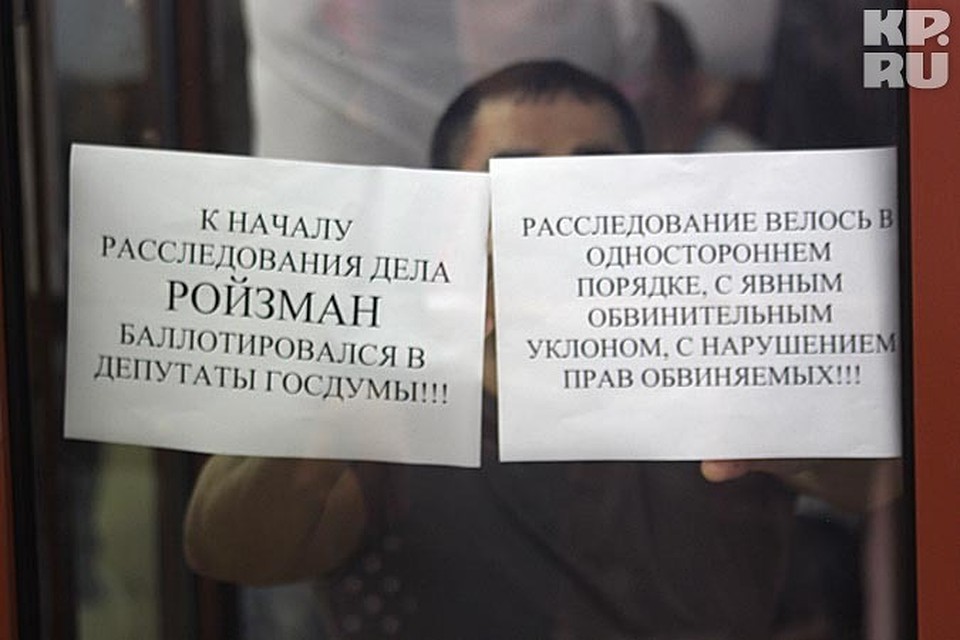 KP.
RU
К НАЧАЛУ
РАССЛЕДОВАНИЯ ДЕЛА
РОЙЗМАН
БАЛЛОТИРОВАЛСЯ В
ДЕПУТАТЫ ГОСДУМЫ!!!
РАССЛЕДОВАНИЕ ВЕЛОСЬ В
ОДНОСТОРОННЕМ
ПОРЯДКЕ, С ЯВНЫМ
ОБВИНИТЕЛЬНЫМ
УКЛОНОМ, С НАРУШЕНИЕМ
ПРАВ ОБВИНЯЕМЫХ!!!